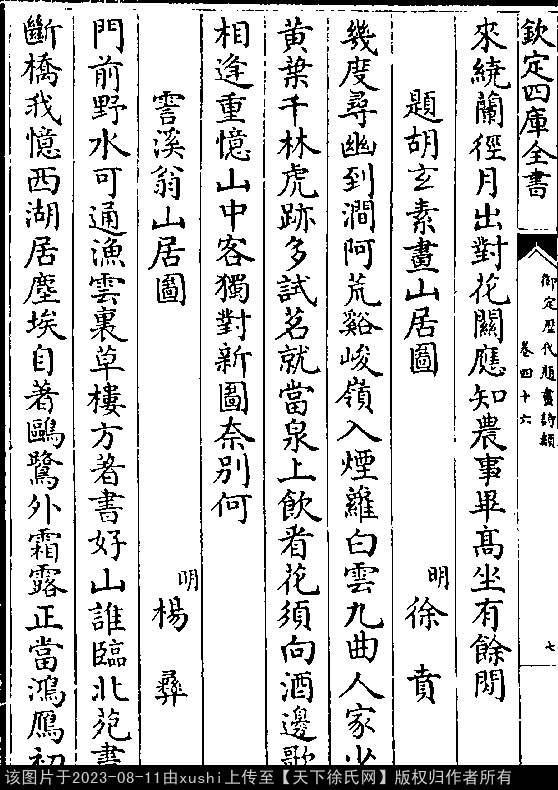 欽定四庫全書
御定歷代題畫詩類
卷四十六
七
來繞蘭徑月出對花關應知農事畢高坐有餘閒
題胡玄素畫山居圖
明
徐賁
幾度尋幽到澗阿荒谿峻嶺入煙蘿白雲九曲人家少
黃葉千林虎跡多試茗就當泉上飲看花須向酒邊歌
相逢重憶山中客獨對新圖奈別何
霅溪翁山居圖
明
楊彝
門前野水可通漁雲裏草樓方著書好山誰臨北苑畫
斷橋我憶西湖居塵埃自著鷗鷺外霜露正當鴻鴈初
该图片于2023-08-11由xushi上传至【天下徐氏网】版权归作者所有